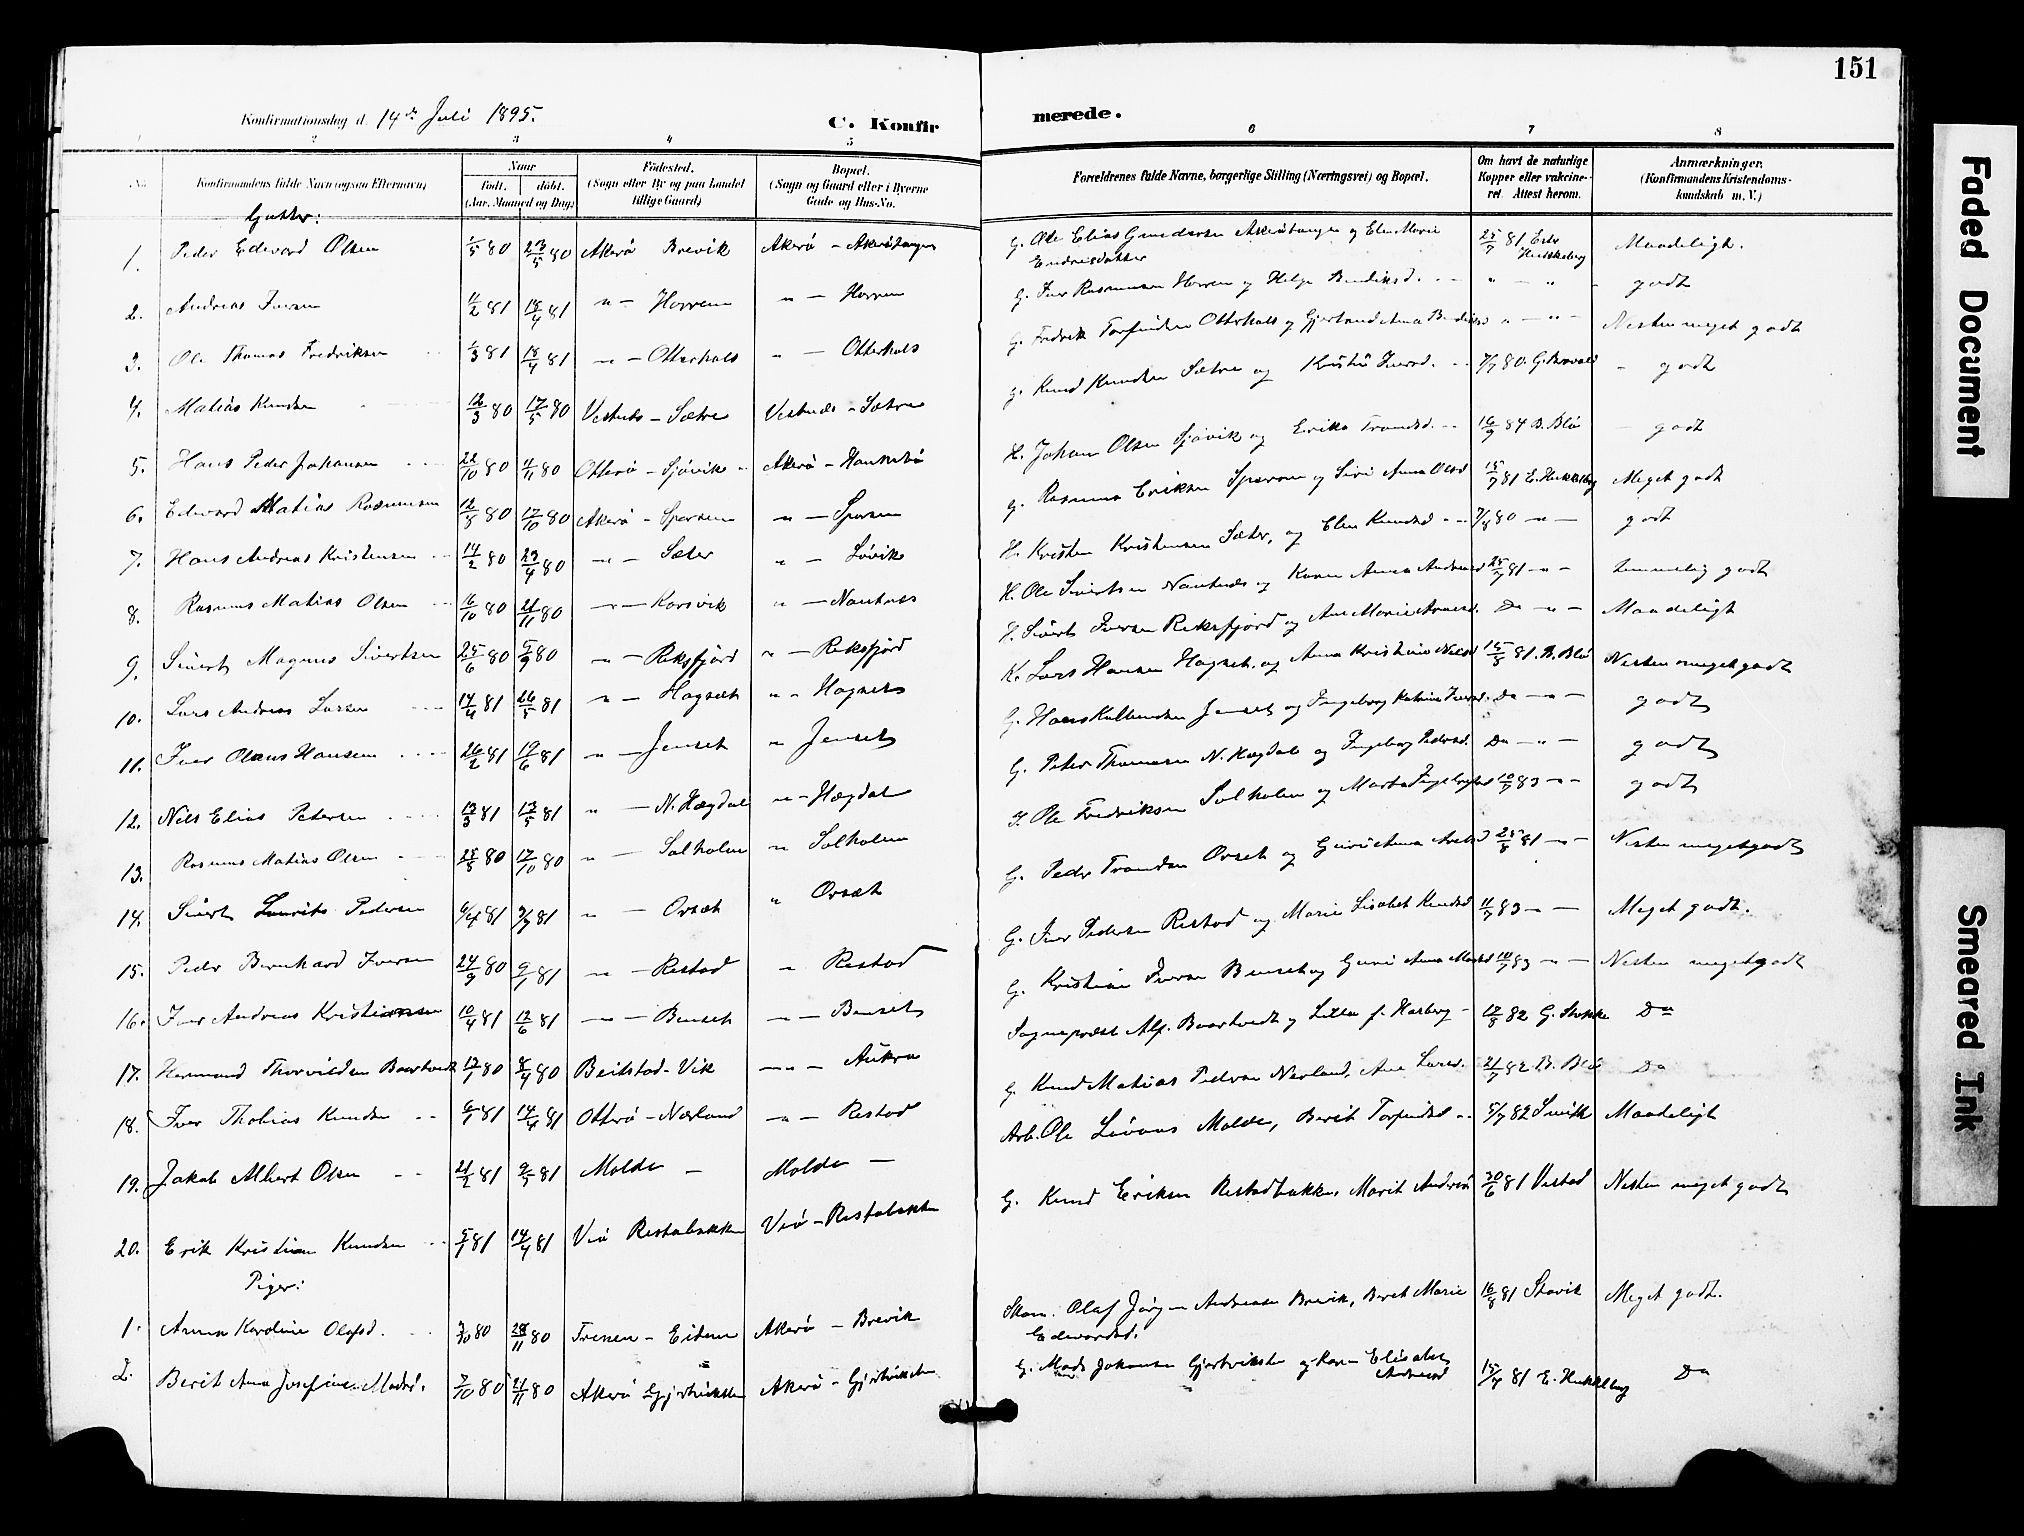 151
Konfirmationsdag d. 14de Juli 1895.
C. Konfirmerede.
1 2 3 4 5 6 7 8
No.
Konfirmandens fulde Navn (ogsaa Efternavn)
Naar
født. døbt.
(Aar, Maaned og Dag)
Fødested.
(Sogn eller By og paa Landet
tillige Gaard)
Bopæl.
(Sogn og Gaard eller i Byerne
Gade og Hus-No.
Forældrenes fulde Navne, borgerlige Stilling (Næringsvei) og Bopæl.
Om havt de naturlige
Kopper eller vakcine-
ret. Attest herom.
Anmærkninger.
(Konfirmandens Kristendoms-
kundskab m. V.)
Gutter:
1. Peder Edvard Olsen 1/5 80 23/5 80 Akerø Brevik Akerø - Akerøtangen G. Ole Elias Gundersen Akerøtangen og Elen Marie Endresdatter 25/7 81 Maadeligt.
2. Andreas Iversen 11/2 81 18/4 81 " - Horrem " - Horrem G. Iver Rasmussen Horrem og Helge Bendiksd. " - " - godt
3. Ole Thomas Fredriksen 1/3 81 18/4 81 " - Otterhals " - Otterhals G. Fredrik Torfindsen Otterhals og Gjertrud Anna " - " - Nesten meget godt
4. Matias Knudsen 12/3 80 17/5 80 Vestnes - Sætre Vestnes - Sætre G. Knud Knudsen Sætre og Kristi Iversd. 7/7 80 - godt
5. Hans Peder Johansen 22/10 80 11/11 80 Otterø - Sjøvik Akerø - H. Johan Olsen Sjøvik og Erika Trondsd. 16/9 84 B. Blø - godt
6. Edvard Matias Rasmussen 12/8 80 17/10 80 Akerø - Sporsem " - Sporsem G. Rasmus Eriksen Sporsem og Siri Anna Olsd 15/7 81 E. Hukkelberg Meget godt
7. Hans Andreas Kristensen 14/2 80 23/4 80 " - Sæter " - Løvik H. Kristen Kristensen Sæter, og Elen Knudsd 7/8 80 - " - godt
8. Rasmus Matias Olsen 16/10 80 21/11 80 " - Korsvik " - Nautnes H. Ole Sivertsen Nautnes og Karen Anna Andreasd 25/7 81 - " - temmelig godt
9. Sivert Magnus Sivertsen 25/6 80 5/9 80 " - Reksfjord " - Reksfjord H. Sivert Iversen Reksfjord og Ane Marie Arnesd. Do - " - Maadeligt
10. Lars Andreas Larsen 17/4 81 26/5 81 " - Hagset " - Hagset K. Lars Hansen Hagset og Anna Kristine Nilsd 15/8 81. B. Blø Nesten meget godt
11. Iver Olaus Hansen 26/2 81 19/6 81 " - Jenset " - Jenset G. Hans Jenset og Ingeborg Katrine Iversd. Do - " - godt
12. Nils Elias Petersen 13/3 81 13/5 81 " - N. Hægdal " - Hægdal G. Peter Thomassen N. Hægdal og Ingeborg Pedersd. Do - " - godt
13. Rasmus Matias Olsen 28/8 80 17/10 80 " - Solholm " - Solholm I. Ole Fredriksen Solholm og Marta 10/7 83 - " - godt
14. Sivert Laurits Pedersen 6/4 81 3/7 81 " - Orset " - Orset G. Peder Trondsen Orset og Guri Anna 25/8 81 - " - Nesten meget godt
15. Peder Bernhard Iversen 24/9 80 9/1 81 " - Restad " - Restad G. Iver Pedersen Restad og Marie Lisabet Knudsd 11/7 83 - " - Meget godt.
16. Iver Andreas Kristiansen 10/4 81 12/6 81 " - Benset " - Benset G. Kristian Iversen Benset og Guri Anna 10/7 83 - " - Nesten meget godt
17. Hermand Thorvildsen Baartvedt 13/1 80 8/4 80 Beitstad - Vik " - Aukra Sogneprest Alf. Baartvedt og f. Harberg 12/8 82 G. Do
18. Iver Thobias Knudsen 6/1 81 14/4 81 Otterø - Nærland " - Restad G. Knud Matias Pedersen Nærland, Ane Larsd. 21/7 82 B. Blø Do
19. Jakob Albert Olsen 21/2 81 9/5 81 Molde - Molde - Arb. Ole Molde, Berit Torfindsd 5/7 82 Maadeligt
20. Erik Kristian Knudsen 5/1 81 14/4 81 Veø Restabakken Veø - Restabakken G. Knud Eriksen Restadbakken, Marit Andrisd 30/6 81 Vestad Nesten meget godt
Piger:
1. Anna Karoline Olafsd. 3/10 80 28/11 80 Frenen - Eidem Akerø - Brevik Olaf Jørgen Andreasen Brevik, Berit Marie Edvardsd. 16/8 81 Stavik Meget godt.
2. Berit Ana Josefine Madsd. 7/10 80 21/11 80 Akerø Gjørtviksten Akerø - Gjørtviksten G. Mads Johansen Gjørtviksten og Karen Elisabet Andreasd 15/7 81 E. Hukkelberg Do
Faded Document
Smeared Ink